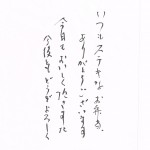 いつもステキなお弁当、
ありがとうございます
今日もおいしく頂きました
今後もどうぞよろしく